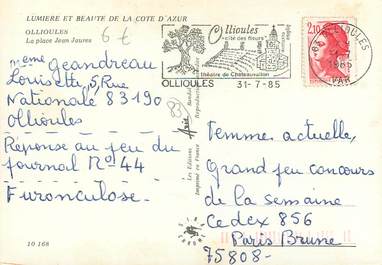 LUMIERE ET BEAUTE DE LA COTE D'AZUR
OLLIOULES
La place Jean Jaures
6 €
Ollioules
cité des fleurs
théâtre de Chateauvallon
OLLIOULES 31-7-85
2,10
83 OLLIOULES
1985
VAR
Mme Geandreau
Louisette, 5, Rue
Nationale 83190
Ollioules
Réponse au jeu du
journal N° 44
Furonculose.
83
Les Editions
Imprimé en France
Reproduction
Femme actuelle,
Grand jeu concours
de la semaine
Cedex 856
Paris Brune
75808-
10 168